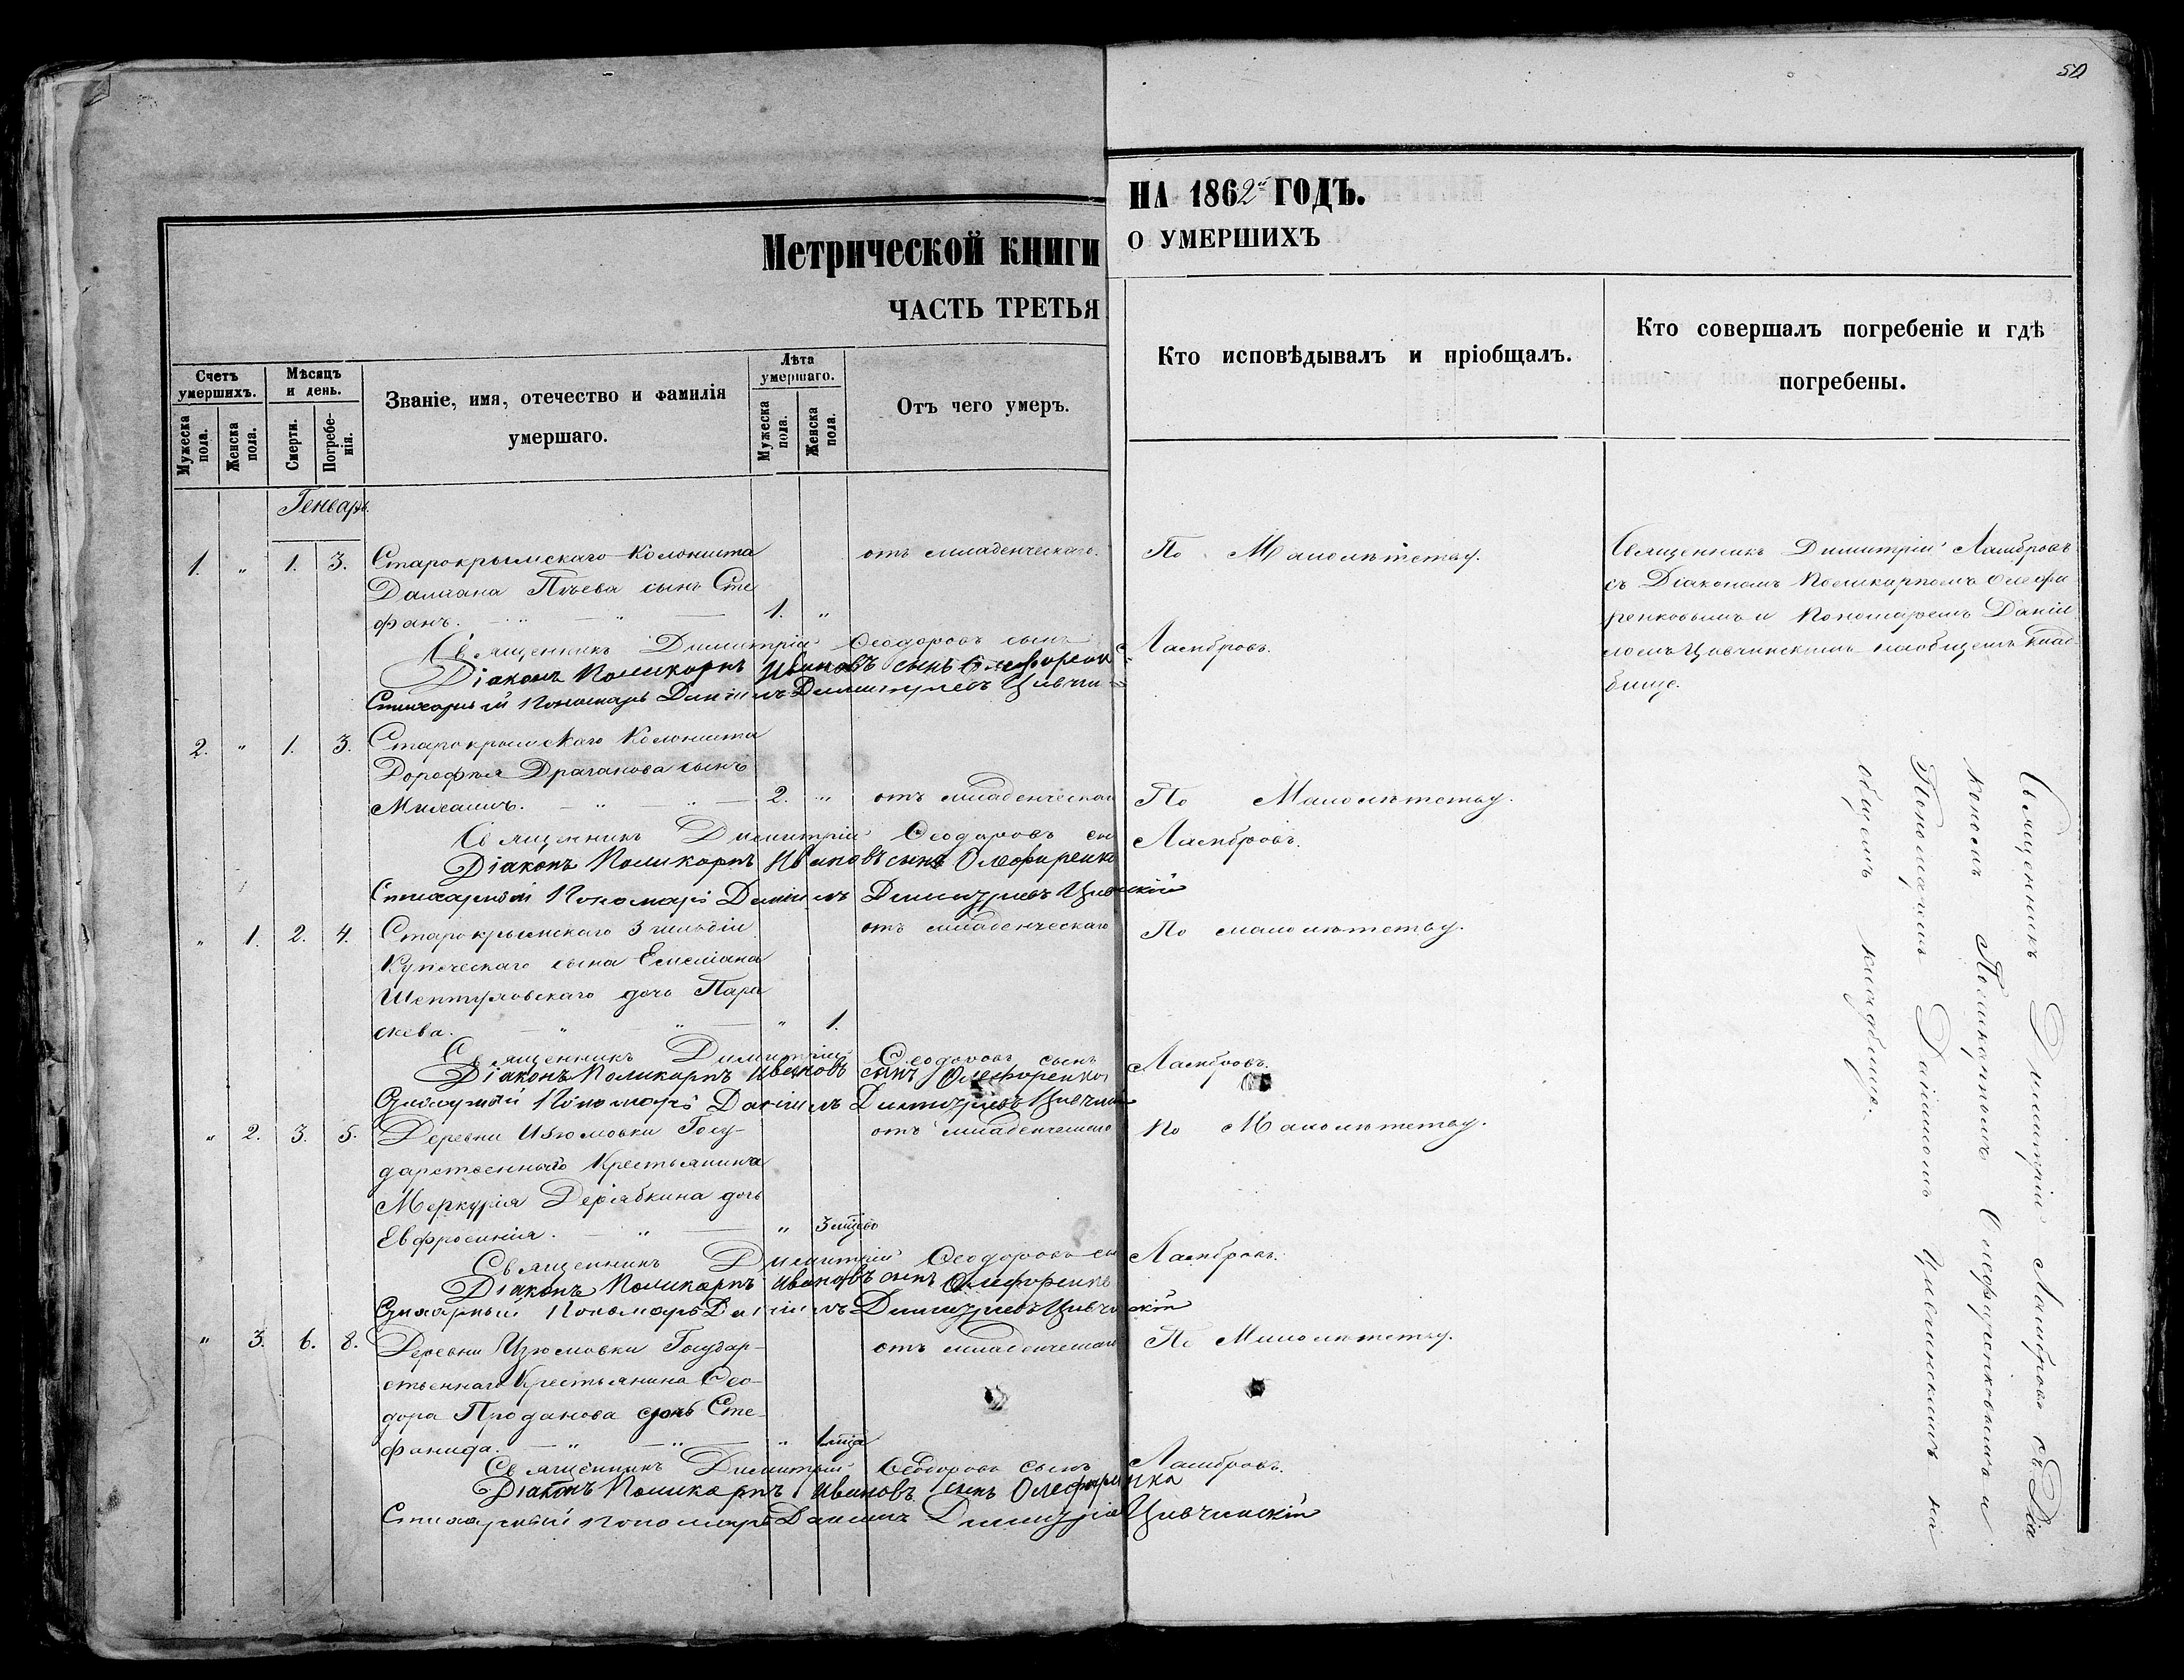 50
НА 1862й ГОДЪ.
Метрической книги
О УМЕРШИХЪ
ЧАСТЬ ТРЕТЬЯ
Счетъ умершихъ.
Мужеска пола.
Женска пола.
Мѣсяцъ и день.
Смерти.
Погребенія.
Званіе, имя, отечество и фамилія
умершаго.
Лѣта умершаго.
Мужеска пола.
Женска пола.
Отъ чего умеръ.
Кто исповѣдывалъ и пріобщалъ.
Кто совершалъ погребеніе и гдѣ
погребены.
Генварь.
1. " 1. 3. Старокрымскаго Колониста отъ младенческаго. По Малолѣтству.
Дамiана сынъ Сте
фанъ. 1. "
Священникъ Димитрій Ѳеодоровъ сынъ Ламбровъ.
Діаконъ Поликарпъ Ивановъ сынъ Олефиренк
Стихарный Пономарь Даніилъ Димитріевъ
Священникъ Димитрій Ламбровъ
съ Діакономъ Поликарпомъ Олефи
ренковымъ и Пономаремъ Даніи
ломъ на общемъ клад
бище.
2. " 1. 3. Старокрымскаго Колониста
Дорофѣя Драганова сынъ
Михаилъ. 2. " отъ младенческаго По Малолѣтству.
Священникъ Димитрій Ѳеодоровъ сы Ламбровъ.
Діаконъ Поликарпъ Ивановъ сынъ Олефиренко
Стихарный Пономарь Даніилъ Димитріевъ
" 1. 2. 4. Старокрымскаго 3 гильдіи отъ младенческаго По малолѣтству.
Купеческаго сына Емеліана
дочь Пара
скева. " 1.
Священникъ Димитрій Ѳеодоровъ сынъ Ламбровъ.
Діаконъ Поликарпъ Ивановъ сынъ Олефиренко
Стихарный Пономарь Даніилъ Димитріевъ
" 2. 3. 5. Деревни Изюмовки Госу- отъ младенческаго По Малолѣтству.
дарственнаго Крестьянина
Меркурія Дерябкина дочь
Евфросинія. " 3 мцѣвъ
Священникъ Димитрій Ѳеодоровъ сы Ламбровъ.
Діаконъ Поликарпъ Ивановъ сынъ Олефиренко
Стихарный Пономарь Даніилъ Димитріевъ
" 3. 6. 8. Деревни Изюмовки Государ- отъ младенческаго По Малолѣтству.
ственнаго Крестьянина Ѳео-
дора Проданова дочь Сте-
фанида. " 1 мца
Священникъ Димитрій Ѳеодоровъ сынъ Ламбровъ.
Діаконъ Поликарпъ Ивановъ сынъ Олефиренка
Стихарный Пономарь Даніилъ Димитріев Цивчинскій
Священникъ Димитрій Ламбровъ съ Діа
кономъ Поликарпомъ Олефиренковымъ и
Пономаремъ Даніиломъ на
общемъ кладбище.